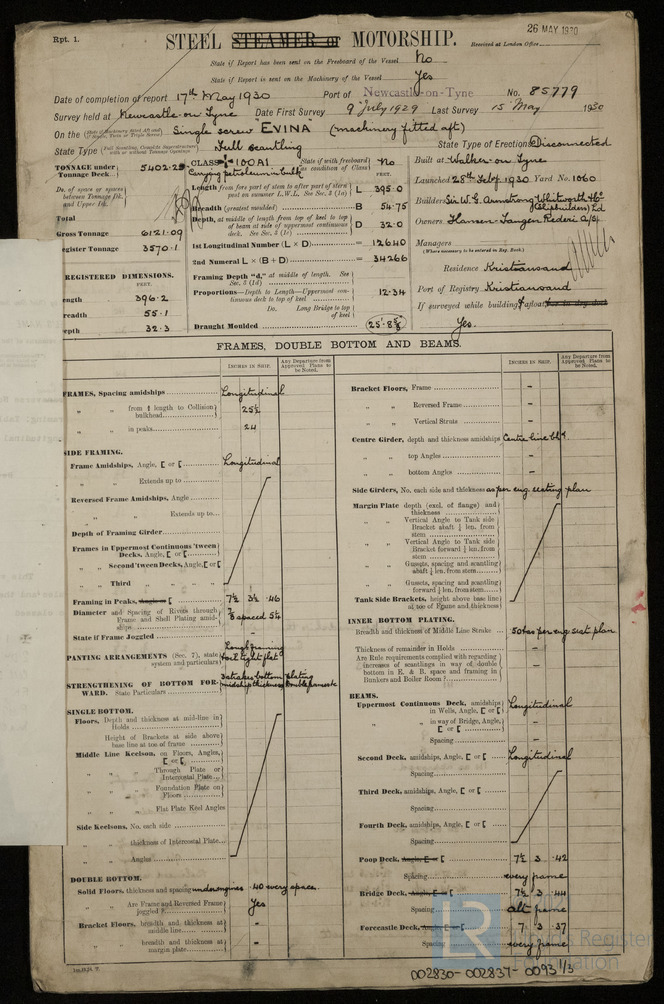 Rpt. 1.
26 MAY 1930
STEEL STEAMER or MOTORSHIP.
Received at London Office
State if Report has been sent on the Freeboard of the Vessel No
State if Report is sent on the Machinery of the Vessel Yes
Date of completion of report 17th May 1930 Port of Newcastle-on-Tyne No. 85779
Survey held at Newcastle-on-Tyne Date First Survey 9 July 1929 Last Survey 15 May 1930
On the Single screw "EVINA" (machinery fitted aft)
State Type Full Scantling State Type of Erections Disconnected
TONNAGE under Tonnage Deck 5402.29
CLASS 100A1 State if with freeboard as condition of Class No
Carrying petroleum in bulk
Built at Walker-on-Tyne
Launched 28th Feby 1930 Yard No. 1060
Do. of space or spaces between Tonnage Dk. and Upper Dk.
Total
Gross Tonnage 6121.09
Register Tonnage 3570.1
Length from fore part of stem to after part of stern post on summer L.W.L. See Sec. 3 (1a) L 395.0
Breadth (greatest moulded) B 54.75
Depth, at middle of length from top of keel to top of beam at side of uppermost continuous deck. See Sec. 3 (1c) D 32.0
1st Longitudinal Number (L × D) = 12640
2nd Numeral L × (B + D) = 34266
Framing Depth "d," at middle of length. See Sec. 3 (1d)
Proportions—Depth to Length—Uppermost continuous deck to top of keel 12.34
Do. Long Bridge to top of keel
Draught Moulded 25'-8 5/8"
Builders Sir W. G. Armstrong Whitworth & Co (Shipbuilders) Ltd
Owners Hansen-Tangen Rederi A/S
Managers
(Where necessary to be entered in Reg. Book.)
Residence Kristiansand
Port of Registry Kristiansand
If surveyed while building, afloat
Yes.
REGISTERED DIMENSIONS.
FEET.
Length 396.2
Breadth 55.1
Depth 32.3
FRAMES, DOUBLE BOTTOM AND BEAMS.
INCHES IN SHIP. Any Departure from Approved Plans to be Noted.
INCHES IN SHIP. Any Departure from Approved Plans to be Noted.
FRAMES, Spacing amidships Longitudinal
" " from ⅕ length to Collision bulkhead 25½
" " in peaks 24
SIDE FRAMING.
Frame Amidships, Angle, [ or [ Longitudinal
" " Extends up to
Reversed Frame Amidships, Angle
" " Extends up to
Depth of Framing Girder
Frames in Uppermost Continuous 'tween Decks, Angle, [ or [
" " Second 'tween Decks, Angle, [ or [
" " Third " " " "
Framing in Peaks, Angle or [ 7½ 3½ .46
Diameter and Spacing of Rivets through Frame and Shell Plating amidships 7/8 spaced 5¼
State if Frame Joggled -
PANTING ARRANGEMENTS (Sec. 7), state system and particulars Longl framing & oil tight flat
STRENGTHENING OF BOTTOM FORWARD. State Particulars 3 strakes bottom plating midship thickness
SINGLE BOTTOM.
Floors, Depth and thickness at mid-line in Holds
Height of Brackets at side above base line at toe of frame
Middle Line Keelson, on Floors, Angles, [ or [
" " Through Plate or Intercostal Plate
" " Foundation Plate on Floors
" " Flat Plate Keel Angles
Side Keelsons, No. each side
" " thickness of Intercostal Plate
" " Angles
DOUBLE BOTTOM.
Solid Floors, thickness and spacing under engines .40 every space
" " Are Frame and Reversed Frame joggled? Yes
Bracket Floors, breadth and thickness at middle line -
" " breadth and thickness at margin plate -
Bracket Floors, Frame -
" " Reversed Frame -
" " Vertical Struts -
Centre Girder, depth and thickness amidships Centre line blkd.
" " top Angles -
" " bottom Angles -
Side Girders, No. each side and thickness as per eng. seating plan
Margin Plate depth (excl. of flange) and thickness
" " Vertical Angle to Tank side Bracket abaft ¼ len. from stem
" " Vertical Angle to Tank side Bracket forward ¼ len. from stem
" " Gussets, spacing and scantling abaft ¼ len. from stem
" " Gussets, spacing and scantling forward ¼ len. from stem
Tank Side Brackets, height above base line at toe of Frame and thickness
INNER BOTTOM PLATING.
Breadth and thickness of Middle Line Strake as per eng. seat plan
Thickness of remainder in Holds -
Are Rule requirements complied with regarding increases of scantlings in way of double bottom in E. & B. space and framing in Bunkers and Boiler Room? -
BEAMS.
Uppermost Continuous Deck, amidships in Wells, Angle, [ or [ Longitudinal
" " in way of Bridge, Angle, [ or [ -
Spacing -
Second Deck, amidships, Angle, [ or [ Longitudinal
Spacing
Third Deck, amidships, Angle, [ or [
Spacing
Fourth Deck, amidships, Angle, [ or [
Spacing
Poop Deck, Angle, [ or [ 7½ 3 .42
Spacing every frame
Bridge Deck, Angle, [ or [ 7½ 3 .44
Spacing alt frame
Forecastle Deck, Angle, [ or [ 7 3 .37
Spacing every frame
LR
Register
Foundation
002830-002837-0093 1/3